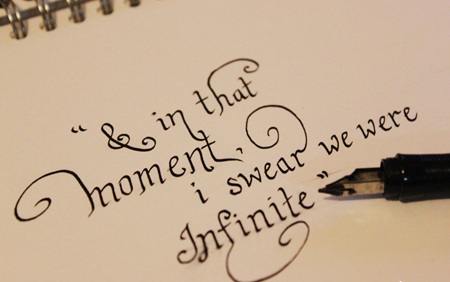 “ & in that
moment,
i swear we were
Infinite”